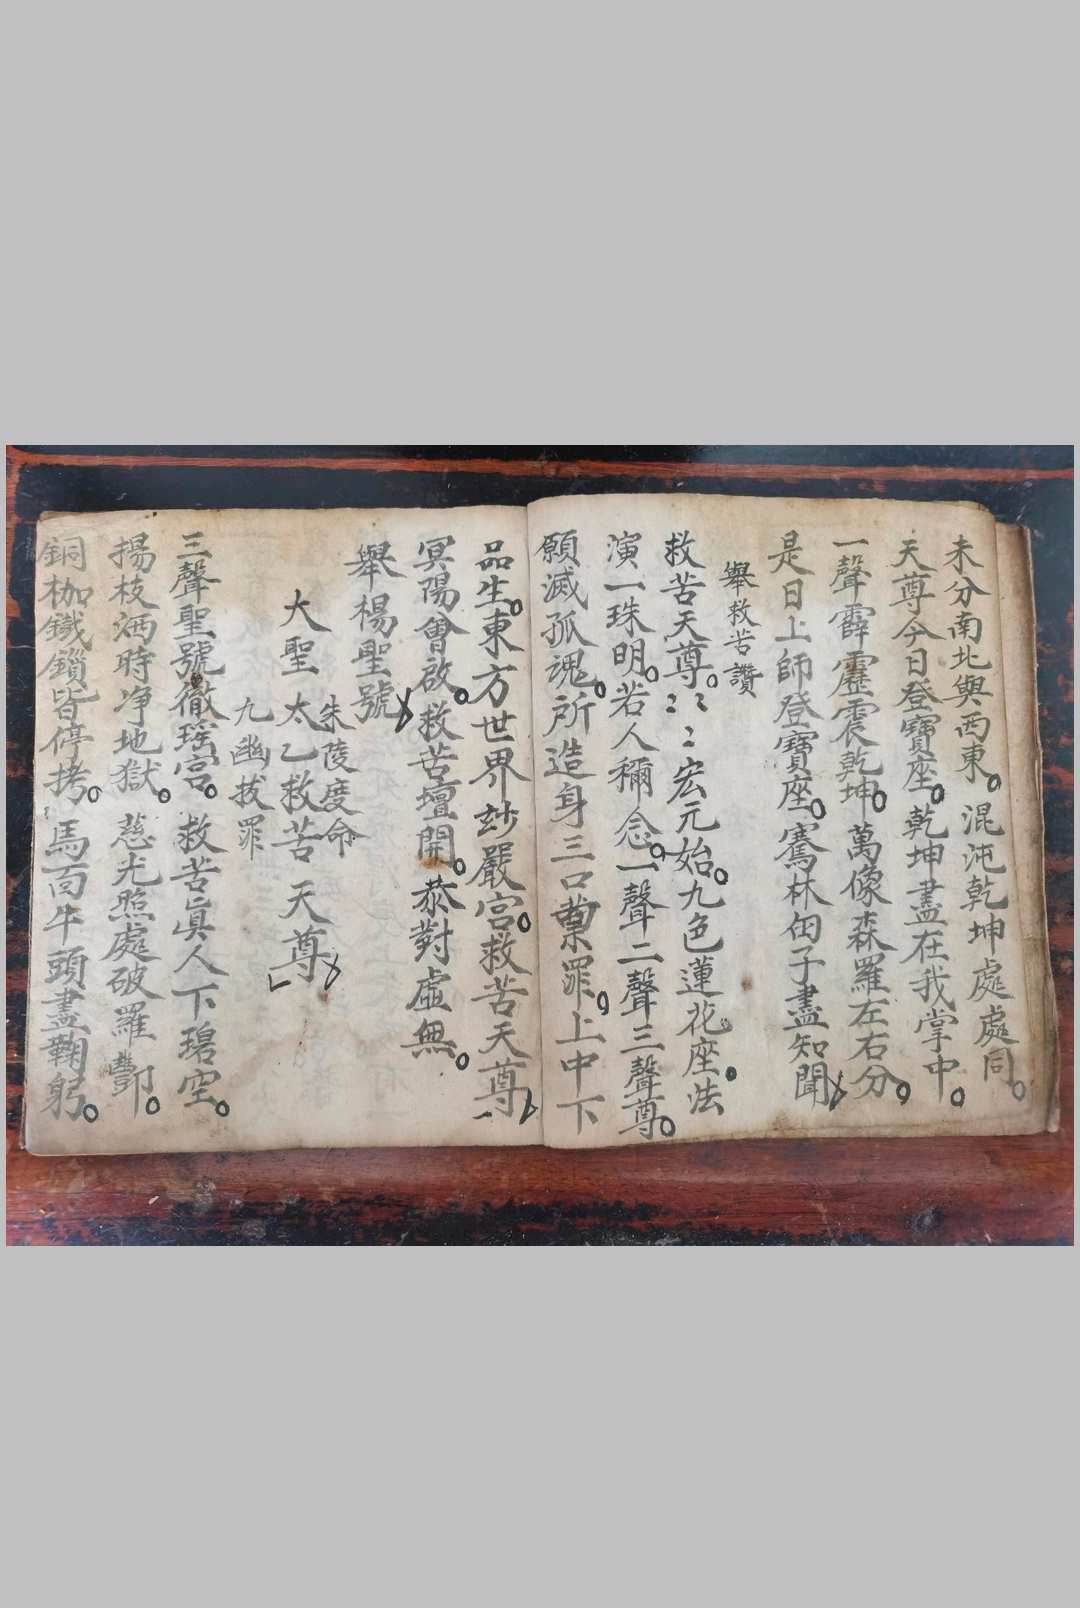 未分南北與西東。混沌乾坤處處同。
天尊今日登寶座。乾坤盡在我掌中。
一聲霹靂震乾坤。萬像森羅左右分。
是日上師登寶座。騫林甶子盡知聞
舉救苦讚
救苦天尊。〻〻〻宏元始。九色蓮花座。法
演一珠明。若人稱念。一聲二聲三聲尊。
願滅孤魂。所造身三口業罪。上中下
品生。東方世界玅嚴宮。救苦天尊
冥陽會啟。救苦壇開。恭對虛無。
舉楊聖號
朱陵度命
大聖太乙救苦天尊
九幽拔罪
三聲聖號徹瑤宮。救苦真人下碧空。
揚枝洒時净地獄。慈光照處破羅酆。
銅枷鐵鎖皆停拷。馬面牛頭盡鞠躬。